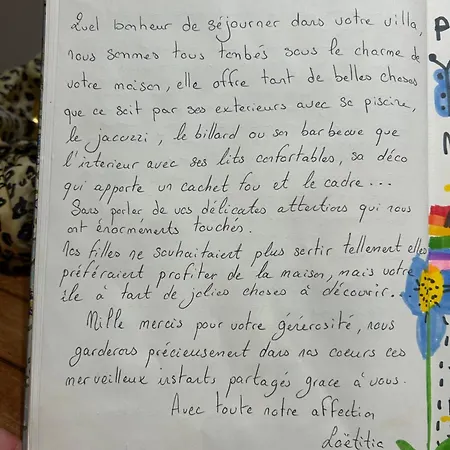 Quel bonheur de séjourner dans votre villa,
nous sommes tous tombés sous le charme de
votre maison, elle offre tant de belles choses
que ce soit par ses exterieurs avec sa piscine,
le jacuzzi, le billard ou son barbecue que
l'interieur avec ses lits confortables, sa déco
qui apporte un cachet fou et le cadre...
Sans parler de vos délicates attentions qui nous
ont énormément touchés.
Nos filles ne souhaitaient plus sortir tellement elles
préféraient profiter de la maison, mais votre
île à tant de jolies choses à découvrir...
Mille mercis pour votre générosité, nous
garderons précieusement dans nos coeurs ces
merveilleux instants partagés grace à vous.
Avec toute notre affection
Laëtitia